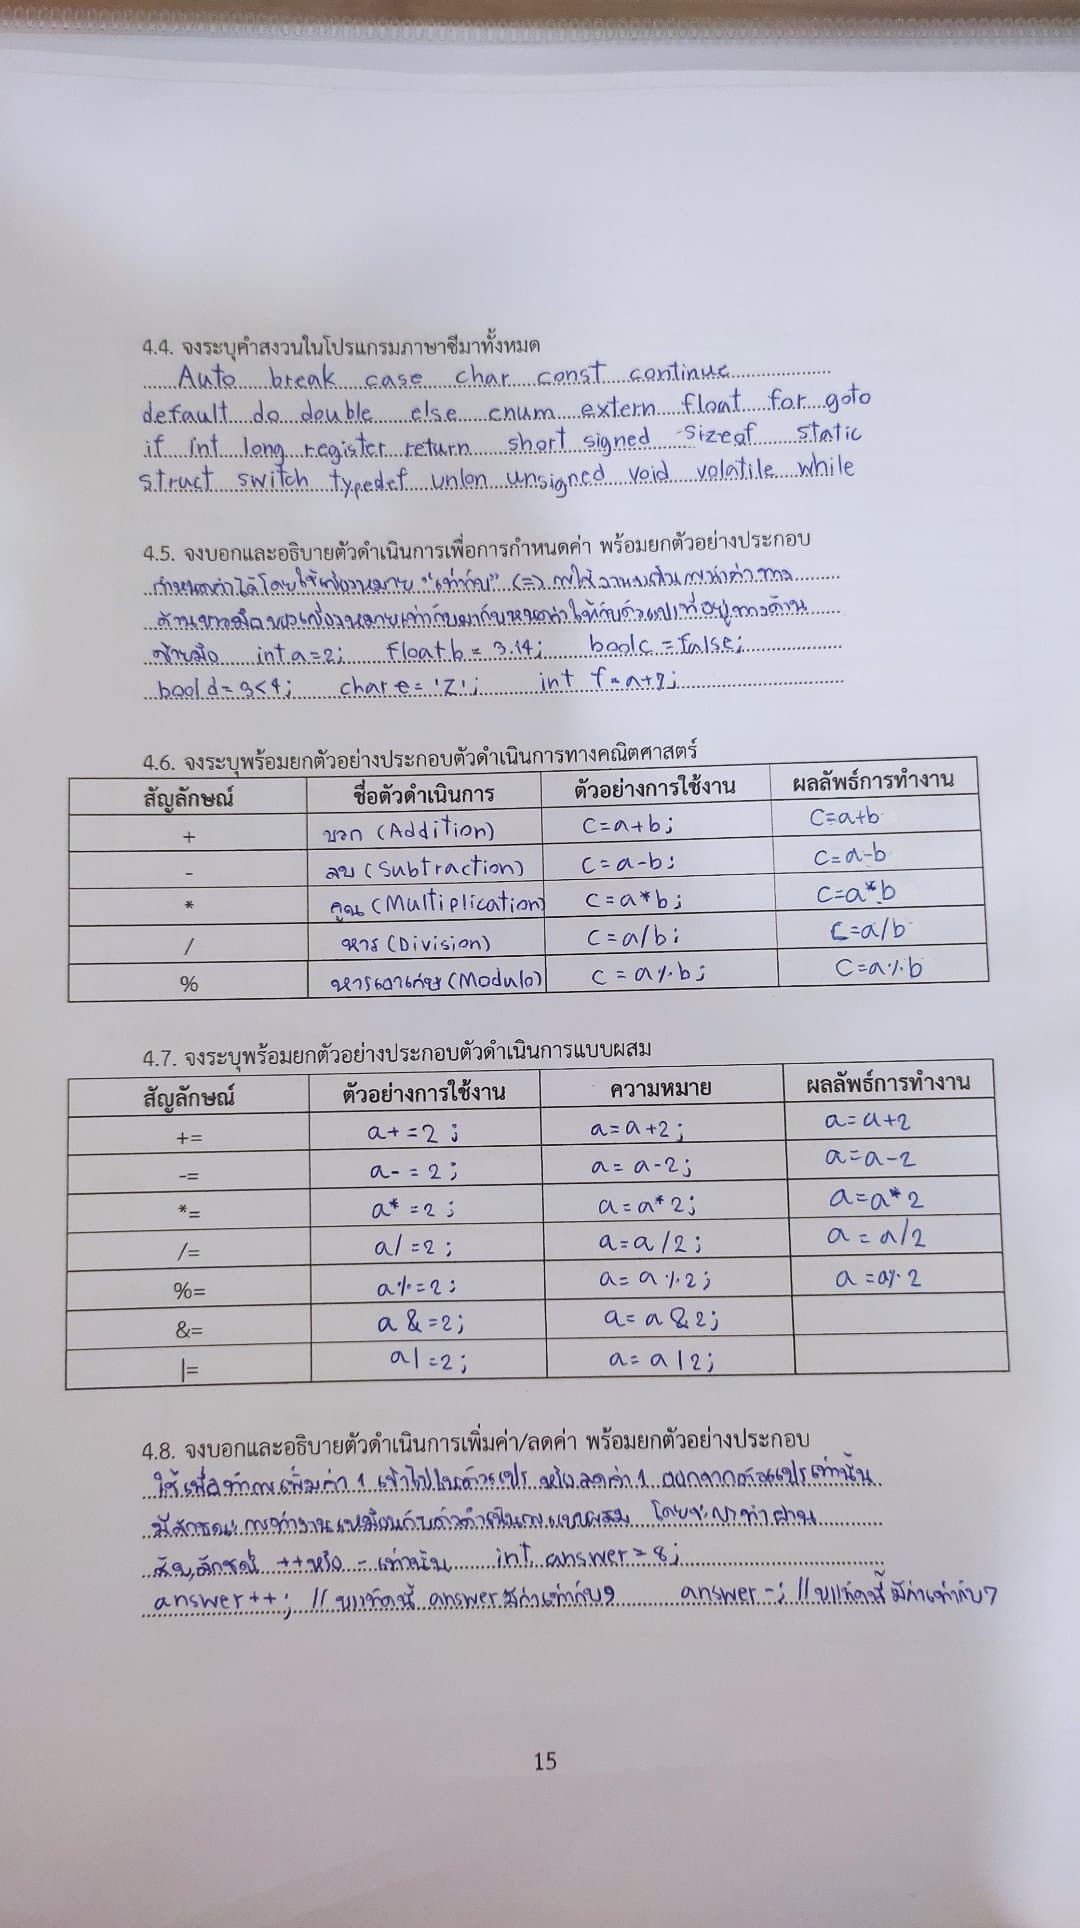 4.4. จงระบุคำสงวนในโปรแกรมภาษาซีมาทั้งหมด
Auto break case char const continue
default do double else enum extern float for goto
if int long register return short signed sizeof static
struct switch typedef union unsigned void volatile while
4.5. จงบอกและอธิบายตัวดำเนินการเพื่อการกำหนดค่า พร้อมยกตัวอย่างประกอบ
กำหนดค่าได้โดยใช้เครื่องหมาย "เท่ากับ" (=) การใช้งานจะเป็นการนำค่าทาง
ด้านขวามือของเครื่องหมายเท่ากับมากำหนดค่าให้กับตัวแปรที่อยู่ทางด้าน
ซ้ายมือ int a=2; float b = 3.14; bool c = false;
bool d= 3<4; char e= 'Z'; int f=a+2;
4.6. จงระบุพร้อมยกตัวอย่างประกอบตัวดำเนินการทางคณิตศาสตร์
สัญลักษณ์ ชื่อตัวดำเนินการ ตัวอย่างการใช้งาน ผลลัพธ์การทำงาน
+ บวก (Addition) C=a+b; C=a+b
- ลบ (Subtraction) C=a-b; C=a-b
* คูณ (Multiplication) C=a*b; C=a*b
/ หาร (Division) C=a/b; C=a/b
% หารเอาเศษ (Modulo) C=a%b; C=a%b
4.7. จงระบุพร้อมยกตัวอย่างประกอบตัวดำเนินการแบบผสม
สัญลักษณ์ ตัวอย่างการใช้งาน ความหมาย ผลลัพธ์การทำงาน
+= a+=2; a=a+2; a=a+2
-= a-=2; a=a-2; a=a-2
*= a*=2; a=a*2; a=a*2
/= a/=2; a=a/2; a=a/2
%= a%=2; a=a%2; a=a%2
&= a&=2; a=a&2;
|= a|=2; a=a|2;
4.8. จงบอกและอธิบายตัวดำเนินการเพิ่มค่า/ลดค่า พร้อมยกตัวอย่างประกอบ
ใช้เพื่อทำการเพิ่มค่า 1 เข้าไปในตัวแปร หรือลดค่า 1 ออกจากตัวแปรเท่านั้น
มีลักษณะการทำงานเหมือนกับตัวดำเนินการแบบผสม โดยจะกระทำผ่าน
สัญลักษณ์ ++หรือ - เท่านั้น int answer=8;
answer++; // บรรทัดนี้ answer มีค่าเท่ากับ9 answer-; // บรรทัดนี้มีค่าเท่ากับ7
15